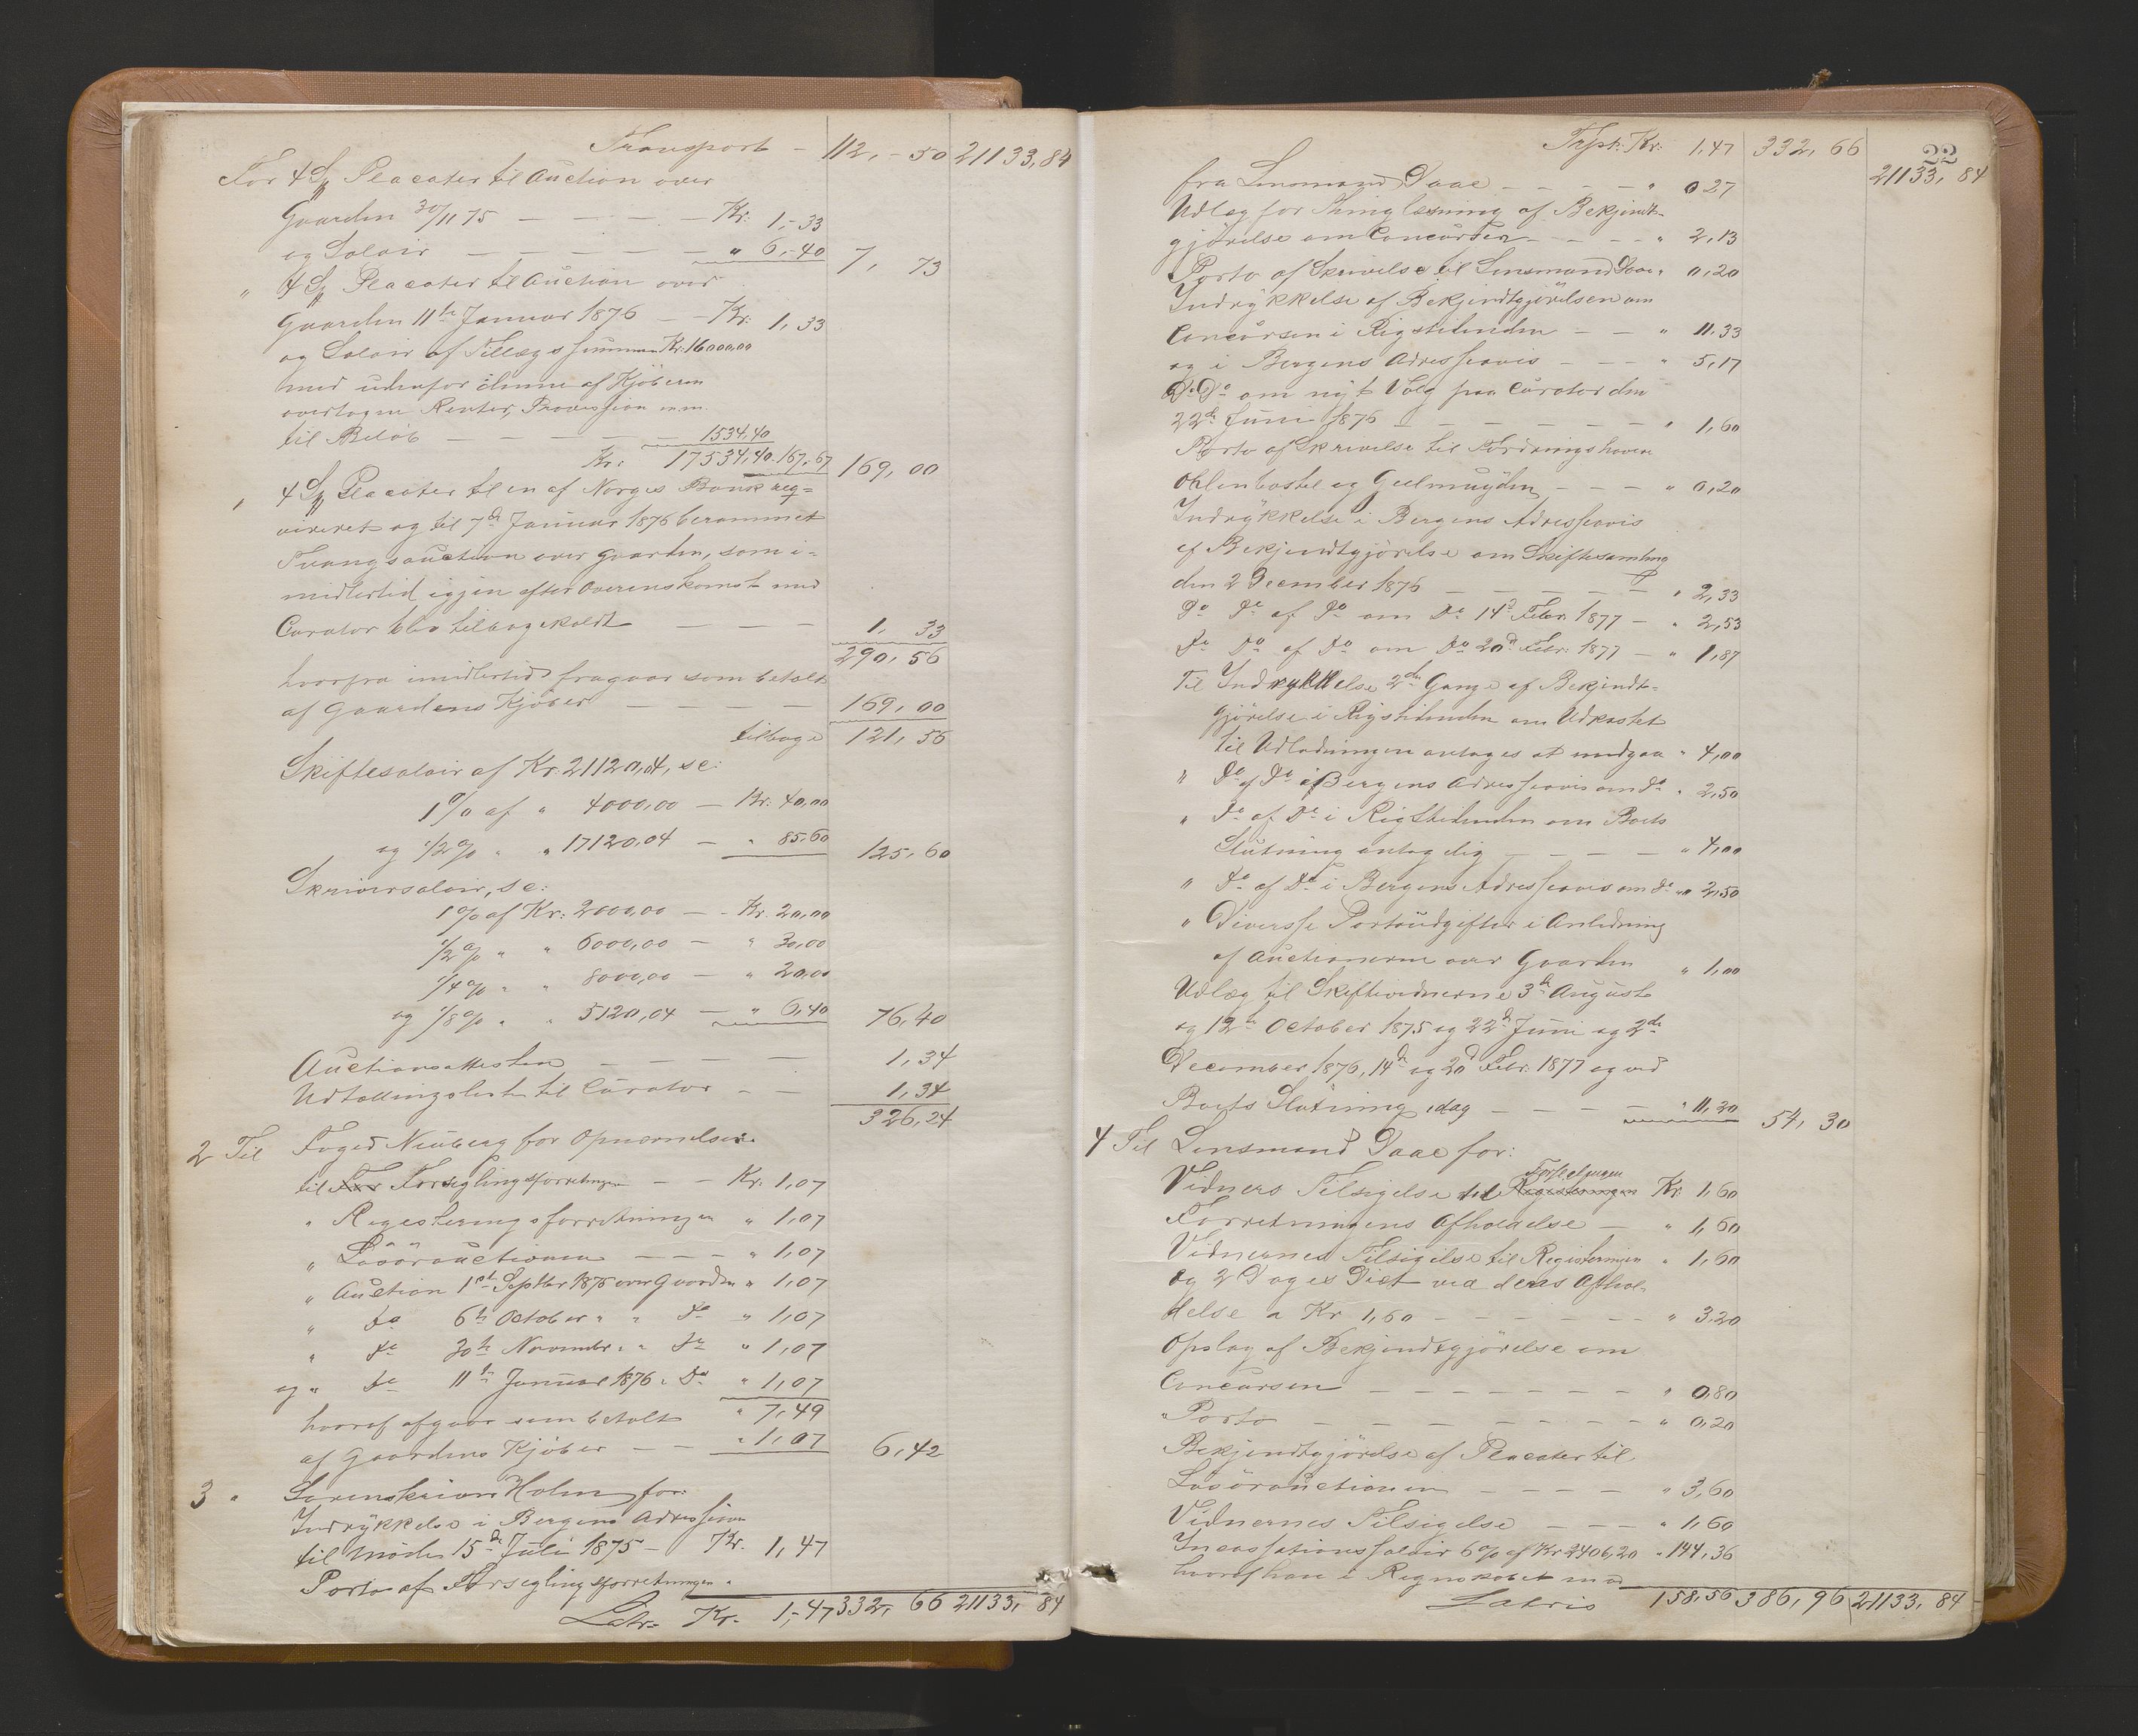 Transport - 112,-50 21133,84
For 4 Placater til Auction over
Gaarden 30/11 75 - - - Kr: 1,-33
og Salair - - - - - " 6,-40 7, 73
" 4 Placater til Auction over
Gaarden 11te Januar 1876 - - Kr: 1,33
og Salair af Tillægssummen Kr. 16000,00
med udenfor denne af Kjøberen
overtagne Renter, Provission m.m.
til Beløb - - - - - 1534,40
Kr: 17534,40. 167,67 169,00
" 4 Placater til en af Norges Bank req=
vireret og til 7de Januar 1876 berammet
Tvangsauction over Gaarden, som i=
midlertid igjen efter Overenskomst med
Curator blev tilbagekaldt - - - 1, 33
290,56
hvorfra imidlertid fragaar som betalt
af Gaardens Kjøber - - - - 169,00
tilbage 121,56
Skiftesalair af Kr. 21120,04, se:
1 % af " 4000,00 - Kr: 40,00
og 1/2 % " " 17120,04 - " 85,60 125,60
Skriversalair, se:
1 % af Kr: 2000,00 - - Kr. 20,00
1/2 % " " 6000,00 - " 30,00
1/4 % " " 8000,00 - " 20,00
og 1/8 % " " 5120,04 - " 6,40 76,40
Auctionsattesten - - - - 1,34
Udtællingsliste til Curator - - 1,34
326,24
2 Til Foged Neuberg for Opnævnelser
til For Forseglingsforretningen - - Kr. 1,07
" Registeringsforretningen " 1,07
" Løsøreauctionen - - - " 1,07
" Auction 1st Septber 1875 over Gaarden " 1,07
" do 6te October " " do " 1,07
" do 30te November " " do " 1,07
og " do 11te Januar 1876 " Do " 1,07
hvoraf afgaar som betalt " 7,49
af Gaardens Kjøber - - " 1,07 6,42
3 " Sorenskriver Holm for:
Indrykkelse i Bergens Adresseavis
til Møde 15de Juli 1875 - Kr. 1,47
Porto af Forseglingsforretningen "
Latr. Kr. 1,-47 332,66 21133,84
22
Trpt: Kr: 1,47 332,66 21133,84
fra Lensmand Daae - - - - " 0 27
Udlæg for Thinglæsning af Bekjendt-
gjørelse om Concursen - - - " 2,13
Porto af Skrivelse til Lensmand Daae " 0,20
Indrykkelse af Bekjendtgjørelsen om
Concursen i Rigstidenden - - " 11,33
og i Bergens Adresseavis - - - " 5,17
Do Do om nyt Valg paa Curator den
22de Juni 1876 - - - - - - " 1,60
Porto af Skrivelse til Fordringshaver
Ohlenbostel og Geelmuyden - - - " 0,20
Indrykkelse i Bergens Adresseavis
af Bekjendtgjørelse om Skiftesamling
den 2 December 1876 - - - - - " 2,33
Do Do af Do om Do 14de Febr. 1877 - " 2,53
Do Do af Do om Do 20d Febr. 1877 - " 1,87
Til Indrykkelse 2den Gang af Bekjendt-
gjørelse i Rigstidenden om Udkastet
til Udlodningen antages at medgaa " 4,00
" Do af Do i Bergens Adresseavis om do " 2,50
" Do af Do i Rigstidenden om Boets
Slutning antagelig - - - - " 4,00
" Do af Do i Bergens Adresseavis om do " 2,50
" Diversse Portoudgifter i Anledning
af Auctionerne over Gaarden " 1,00
Udlæg til Skiftevidnerne 3de August
og 12te October 1875 og 22de Juni og 2den
December 1876, 14de og 20d Febr. 1877 og ved
Boets Slutning idag - - - - " 11,20 54,30
4 Til Lensmand Daae for:
Forseglingen
Vidners Tilsigelse til Registeringen Kr 1,60
Forretningens Afholdelse - " 1,60
Vidnernes Tilsigelse til Registeringen " 1,60
og 2 Dages Diæt ved deres Afhol-
delse a Kr 1,60 - - - - - " 3,20
Opslag af Bekjendtgjørelse om
Concursen - - - - - - - " 0,80
" Porto - - - - - - - - " 0,20
Bekjendtgjørelse af Placater til
Løsøreauctionen - - - - " 3,60
Vidnernes Tilsigelse - - - " 1,60
Incassationssalair 6 % af Kr 2406,20 " 144,36
hvoraf han i Regnskabet med
Lateris 158,56 386,96 21133,84